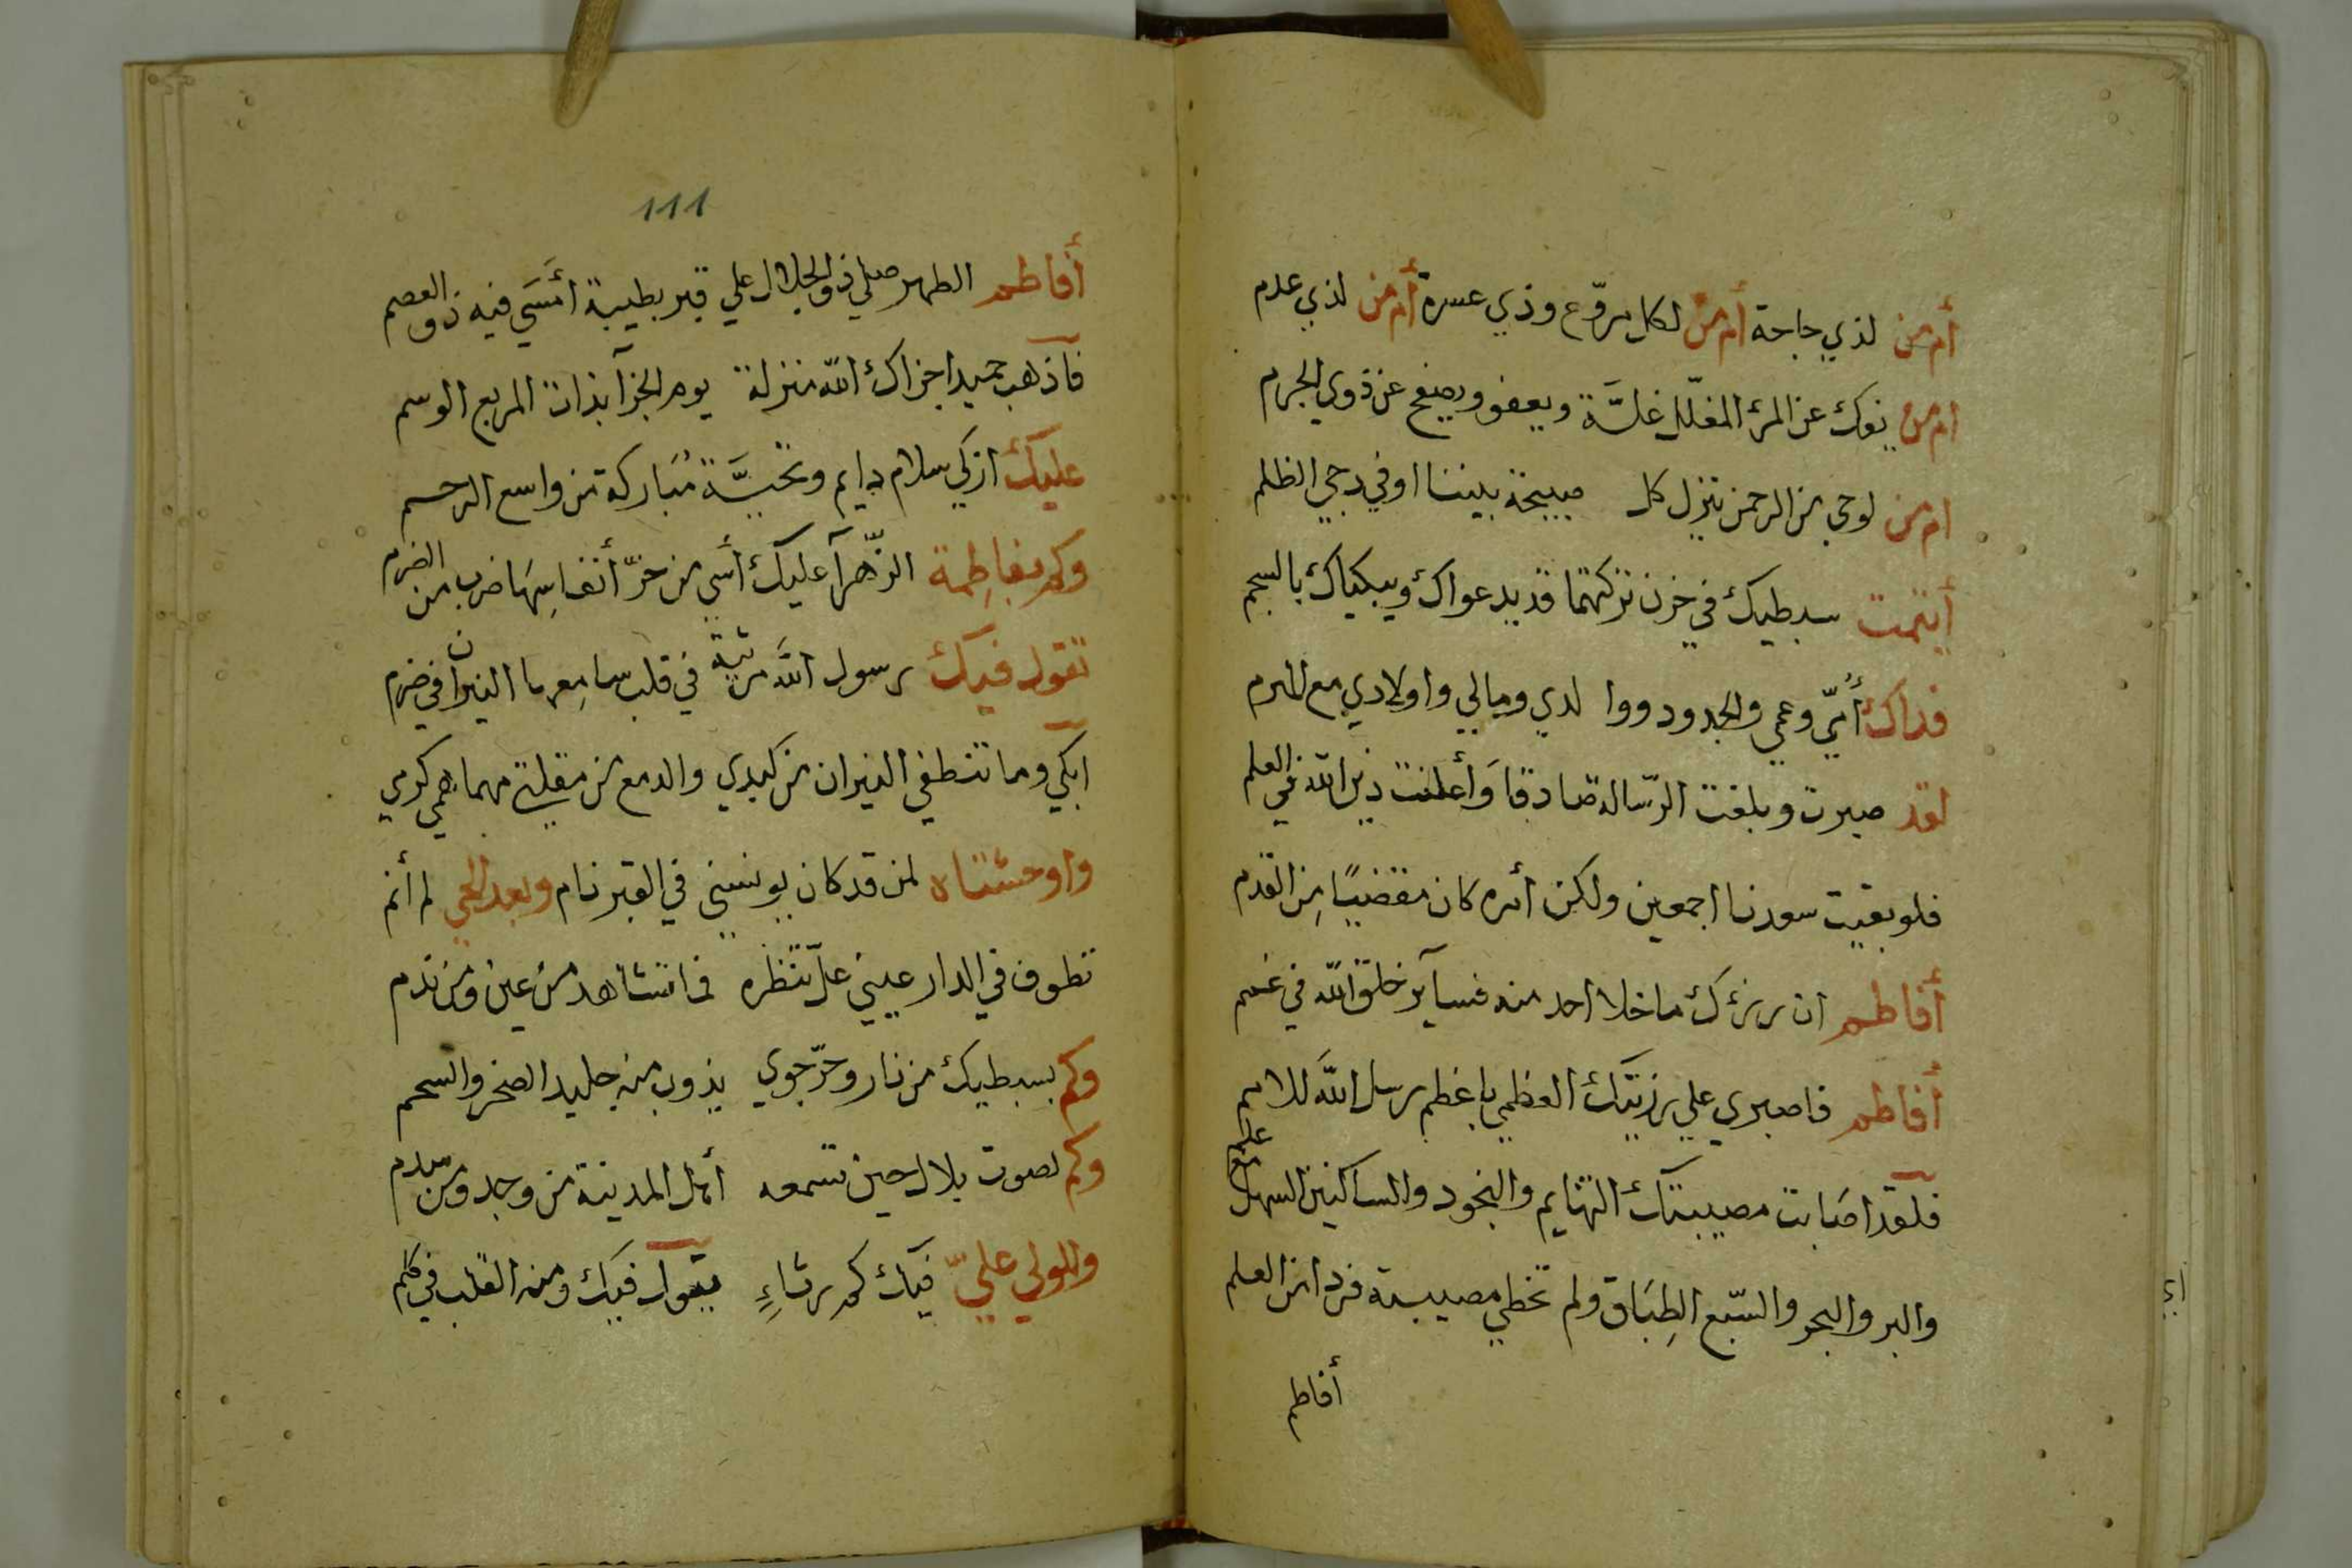 أم من لذي حاجة أم من لكل مروّع وذي عسرة أم من لذي عدم
ام من يفك عن المرء المغلّل غلّة ويعفو ويصفح عن ذوي الجرم
ام من لوحي من الرحمن تنزل كل صبيحة بيننا او في دجي الظلم
أيتمت سبطيك في حزن تركتهما قد يدعواك ويبكياك بالسجم
فداك أمّي وعمي والجدود ووا لدي ومالي واولادي مع الحرم
لقد صبرت وبلغت الرّسالة صادقا وأعلنت دين الله في العلم
فلو بقيت سعدنا اجمعين ولكن أمره كان مقضيًا مِن القدم
أفاطم ان رزئك ما خلا احد منه فسآير خلق الله في غمم
أفاطم فاصبري علي رزيتك العظمي باعظم رسل الله للامم
فلقد اصابت مصيبتك التهايم والنجود والساكنين السهل مع علم
والبر والبحر والسّبع الطِبَاق ولم تخطي مصيبة فردا من العلم
أفاطم
111
أفاطم الطهر صلي ذو الجلال علي قبر بطيبة أمسَي فيه ذو العصم
فآذهب حميدا جزاك الله منزلة يوم الجزآ بذات المربع الوسم
عليك ازكي سلام دايم وتحيَّة مُبَاركة من واسع الرحم
وكم بفاطِمة الزّهرآ عليك أسي من حرّ أنفاسِهَا ضرب من الضرم
تقول فيك رسول الله مرثية في قلب سامِعها النيران في ضرم
ابكي وما تنطفي النيران من كبدي والدمع من مقلتي مهما همي كرمي
واوحشتاه لمن قد كان يونسني في القبر نام وبعد الحي لم أنم
تطوف في الدار عيني علّ تنظره فما تشاهد من عين ومن ندم
وكم بسبطيك من نار وحرّ جوي يذوب منه جليد الصخر والسحم
وكم لصوت بلال حين تسمعه أهل المدينة من وجد ومن سدم
وللولي عليّ فيك كم رثاءٍ يقول فيك ومنه القلب في كلم